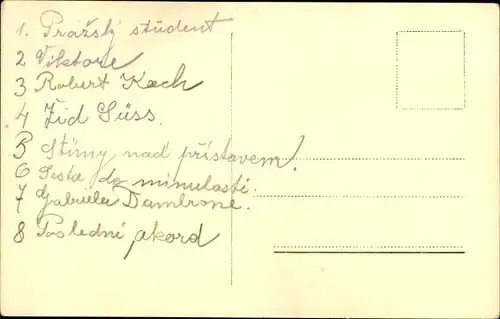 1. Pražský student
2 Viktorie
3 Robert Kach
4 Žid Süss.
5 Stíny nad přístavem!
6 Sesta do minulasti.
7 Gabriela Dambrone.
8 Poslední akord